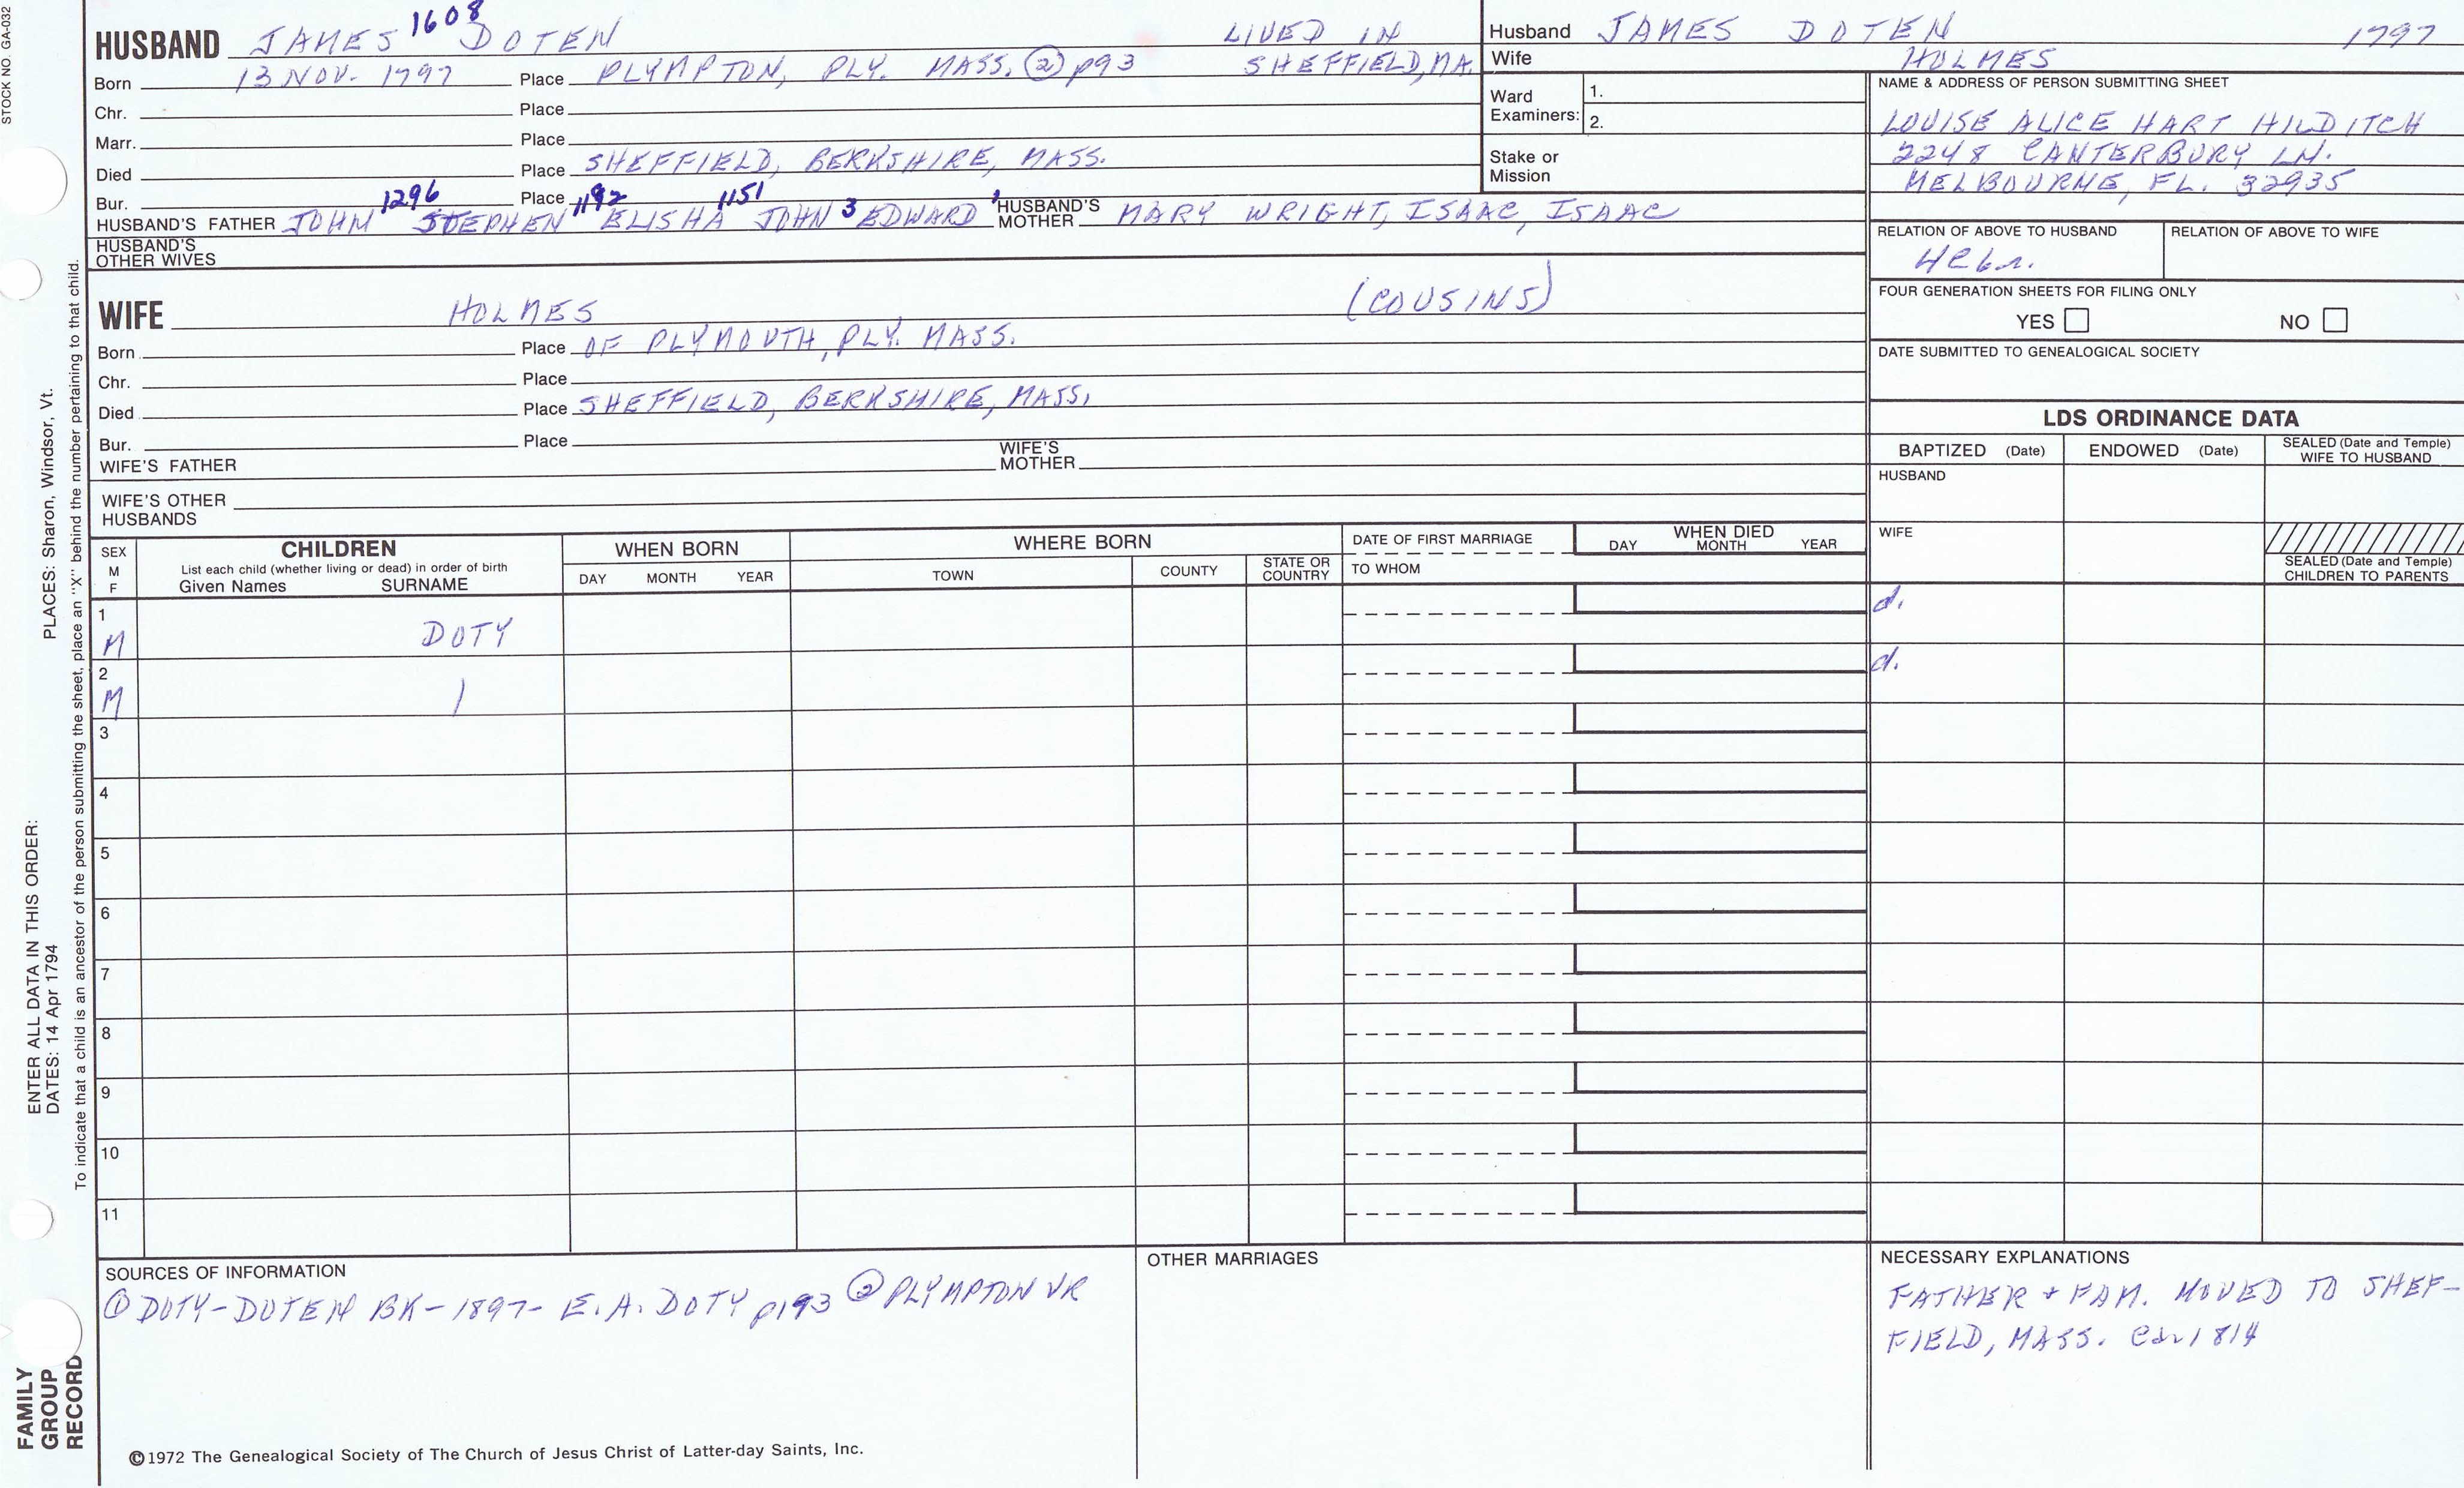 STOCK NO. GA-032
1608
HUSBAND JAMES DOTEN LIVED IN
Born 13 NOV. 1797 Place PLYMPTON, PLY. MASS. ② p93 SHEFFIELD, MA.
Chr. Place
Marr. Place
Died Place SHEFFIELD, BERKSHIRE, MASS.
Bur. 1296 Place 1192 1151 3 1
HUSBAND'S FATHER JOHN STEPHEN ELISHA JOHN EDWARD HUSBAND'S MOTHER MARY WRIGHT, ISAAC, ISAAC
HUSBAND'S OTHER WIVES
WIFE HOLMES (COUSINS)
Born Place OF PLYMOUTH, PLY. MASS.
Chr. Place
Died Place SHEFFIELD, BERKSHIRE, MASS.
Bur. Place
WIFE'S FATHER WIFE'S MOTHER
WIFE'S OTHER HUSBANDS
Husband JAMES DOTEN 1797
Wife HOLMES
Ward Examiners: 1.
2.
Stake or Mission
NAME & ADDRESS OF PERSON SUBMITTING SHEET
LOUISE ALICE HART HILDITCH
2248 CANTERBURY LN.
MELBOURNE, FL. 32935
RELATION OF ABOVE TO HUSBAND RELATION OF ABOVE TO WIFE
FOUR GENERATION SHEETS FOR FILING ONLY
YES NO
DATE SUBMITTED TO GENEALOGICAL SOCIETY
LDS ORDINANCE DATA
BAPTIZED (Date) ENDOWED (Date) SEALED (Date and Temple) WIFE TO HUSBAND
HUSBAND
WIFE
SEALED (Date and Temple) CHILDREN TO PARENTS
SEX M F
CHILDREN
List each child (whether living or dead) in order of birth
Given Names SURNAME
WHEN BORN
DAY MONTH YEAR
WHERE BORN
TOWN COUNTY STATE OR COUNTRY
DATE OF FIRST MARRIAGE
TO WHOM
WHEN DIED
DAY MONTH YEAR
1 M DOTY d.
2 M d.
3
4
5
6
7
8
9
10
11
SOURCES OF INFORMATION
① DOTY-DOTEN BK-1897- E.A. DOTY p193 ② PLYMPTON VR
OTHER MARRIAGES
NECESSARY EXPLANATIONS
FATHER + FAM. MOVED TO SHEF-
FIELD, MASS. 1814
©1972 The Genealogical Society of The Church of Jesus Christ of Latter-day Saints, Inc.
FAMILY GROUP RECORD
ENTER ALL DATA IN THIS ORDER:
DATES: 14 Apr 1794 PLACES: Sharon, Windsor, Vt.
To indicate that a child is an ancestor of the person submitting the sheet, place an "X" behind the number pertaining to that child.